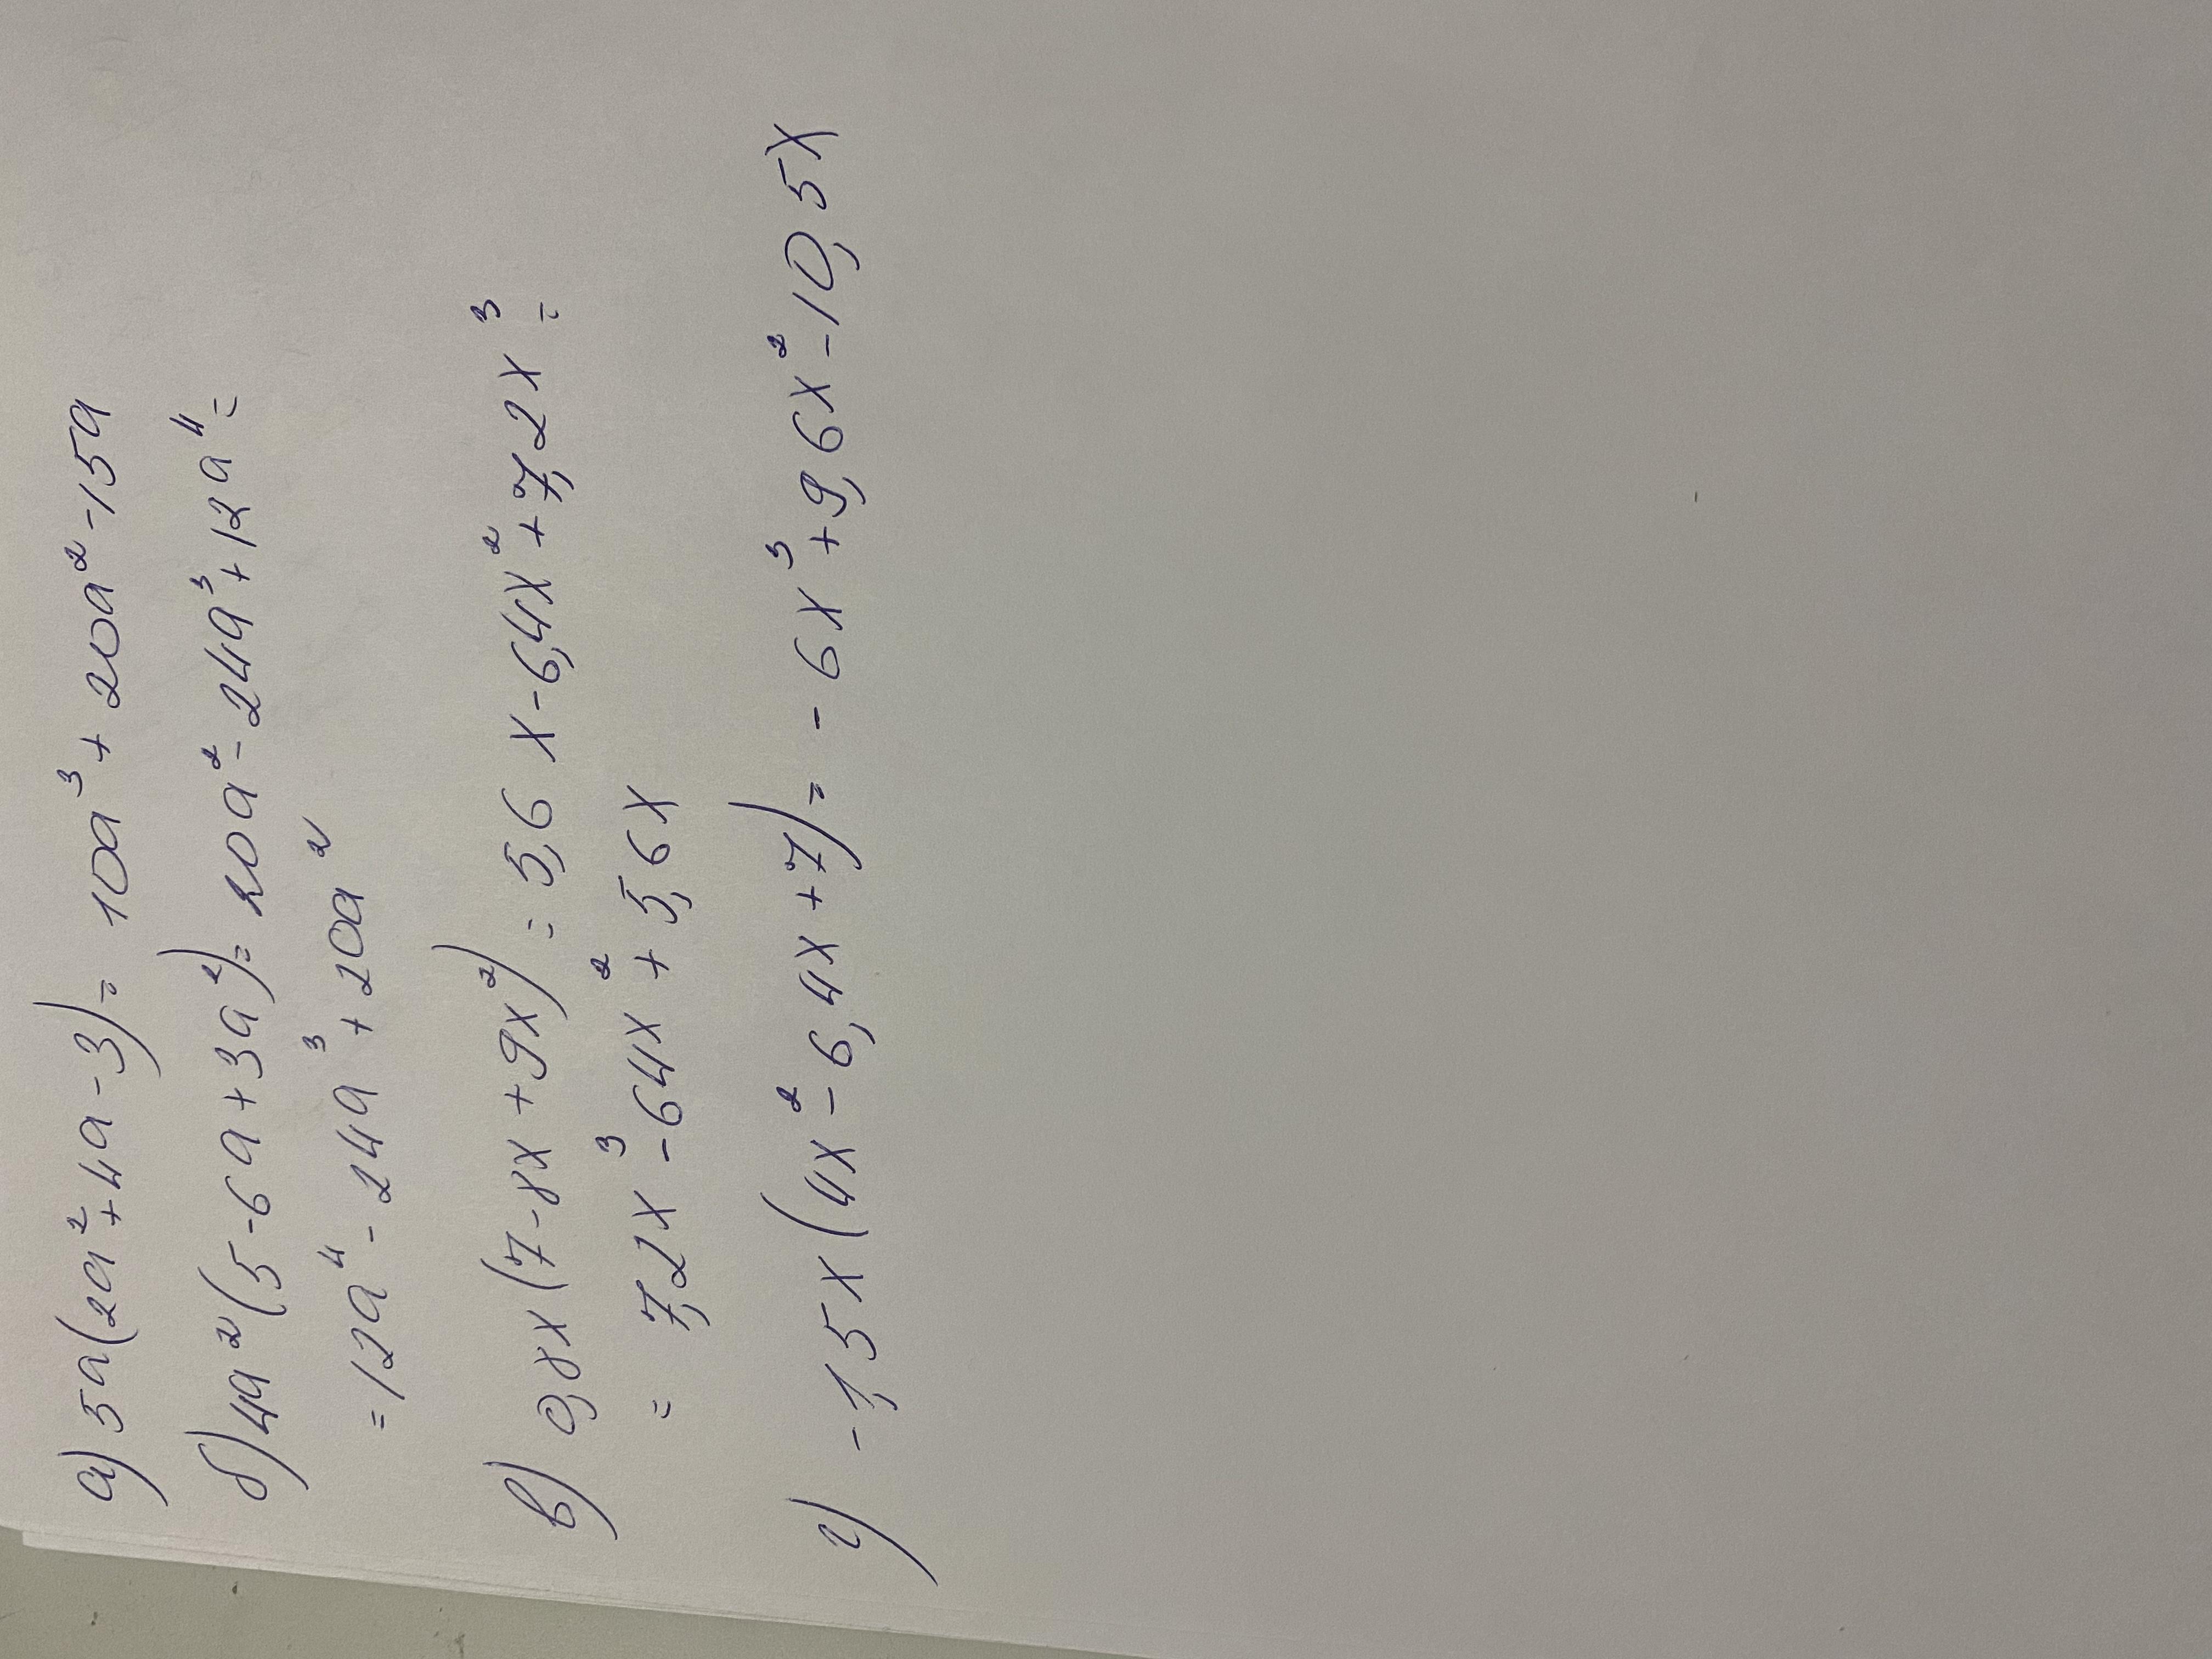 а) 5a(2a²+4a-3)= 10a³+20a²-15a
б) 4a²(5-6a+3a²)=20a²-24a³+12a⁴=
=12a⁴-24a³+20a²
в) 0,8x(7-8x+9x²)=5,6x-6,4x²+7,2x³=
= 7,2x³-64x²+5,6x
г) -1,5x(4x²-6,4x+7)= -6x³+9,6x²-10,5x